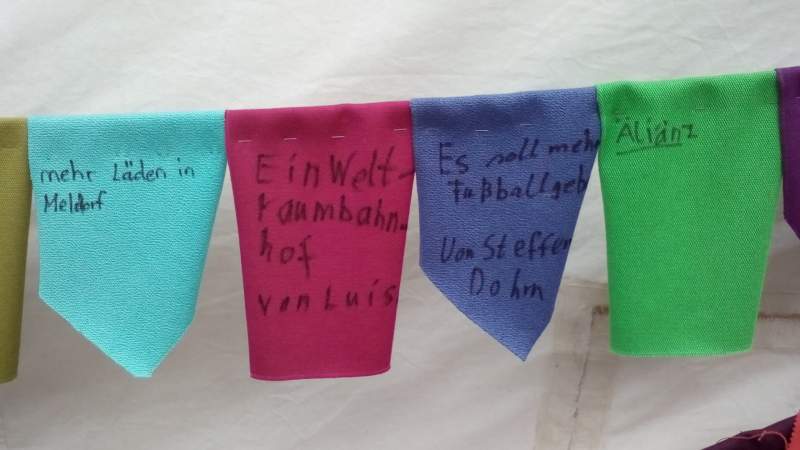 mehr Läden in
Meldorf
Ein Welt-
raumbahn-
hof
von Luis
Es soll mehr
Fußball geb
Von Steffen
Dohm
Älianz